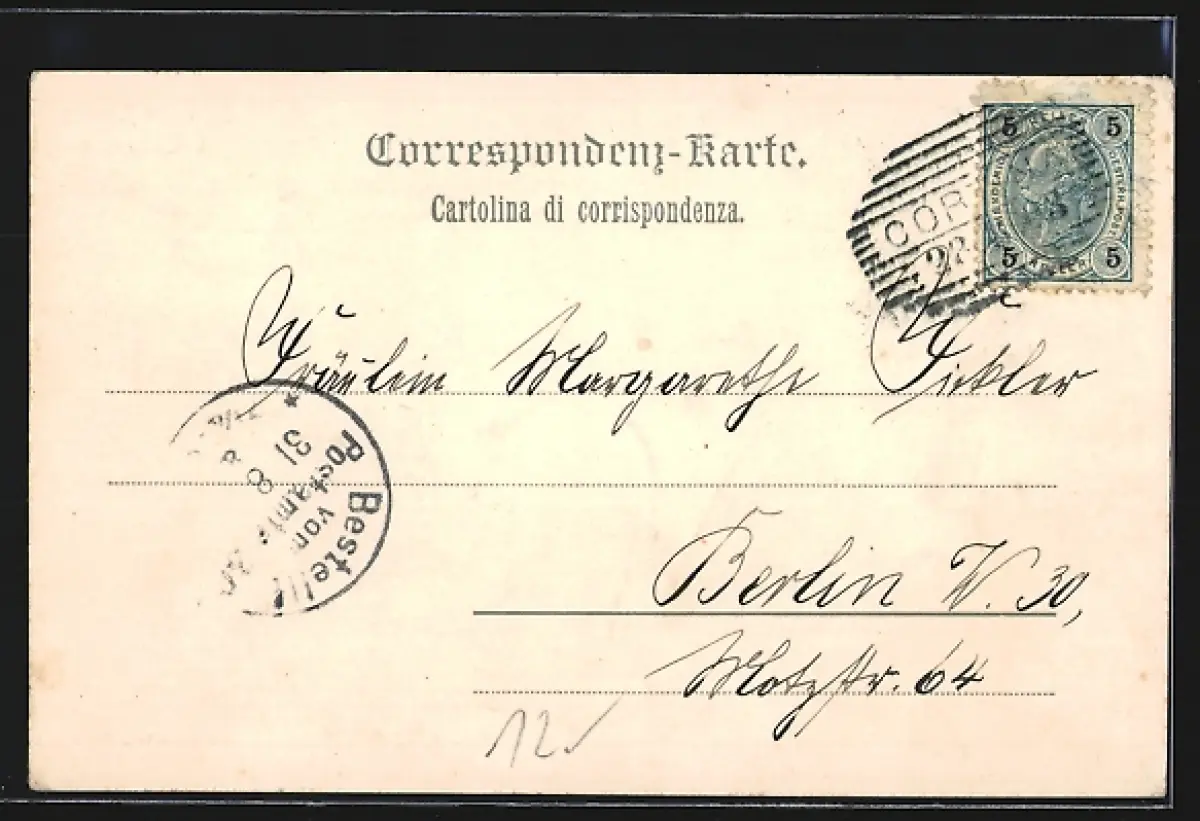 Correspondenz-Karte.
Cartolina di corrispondenza.
5 5
5 5
COR
22
Fräulein Margarethe Fickler
31 8
Bestellt
vom
Postamte
Berlin W. 30,
Motzstr. 64
12.